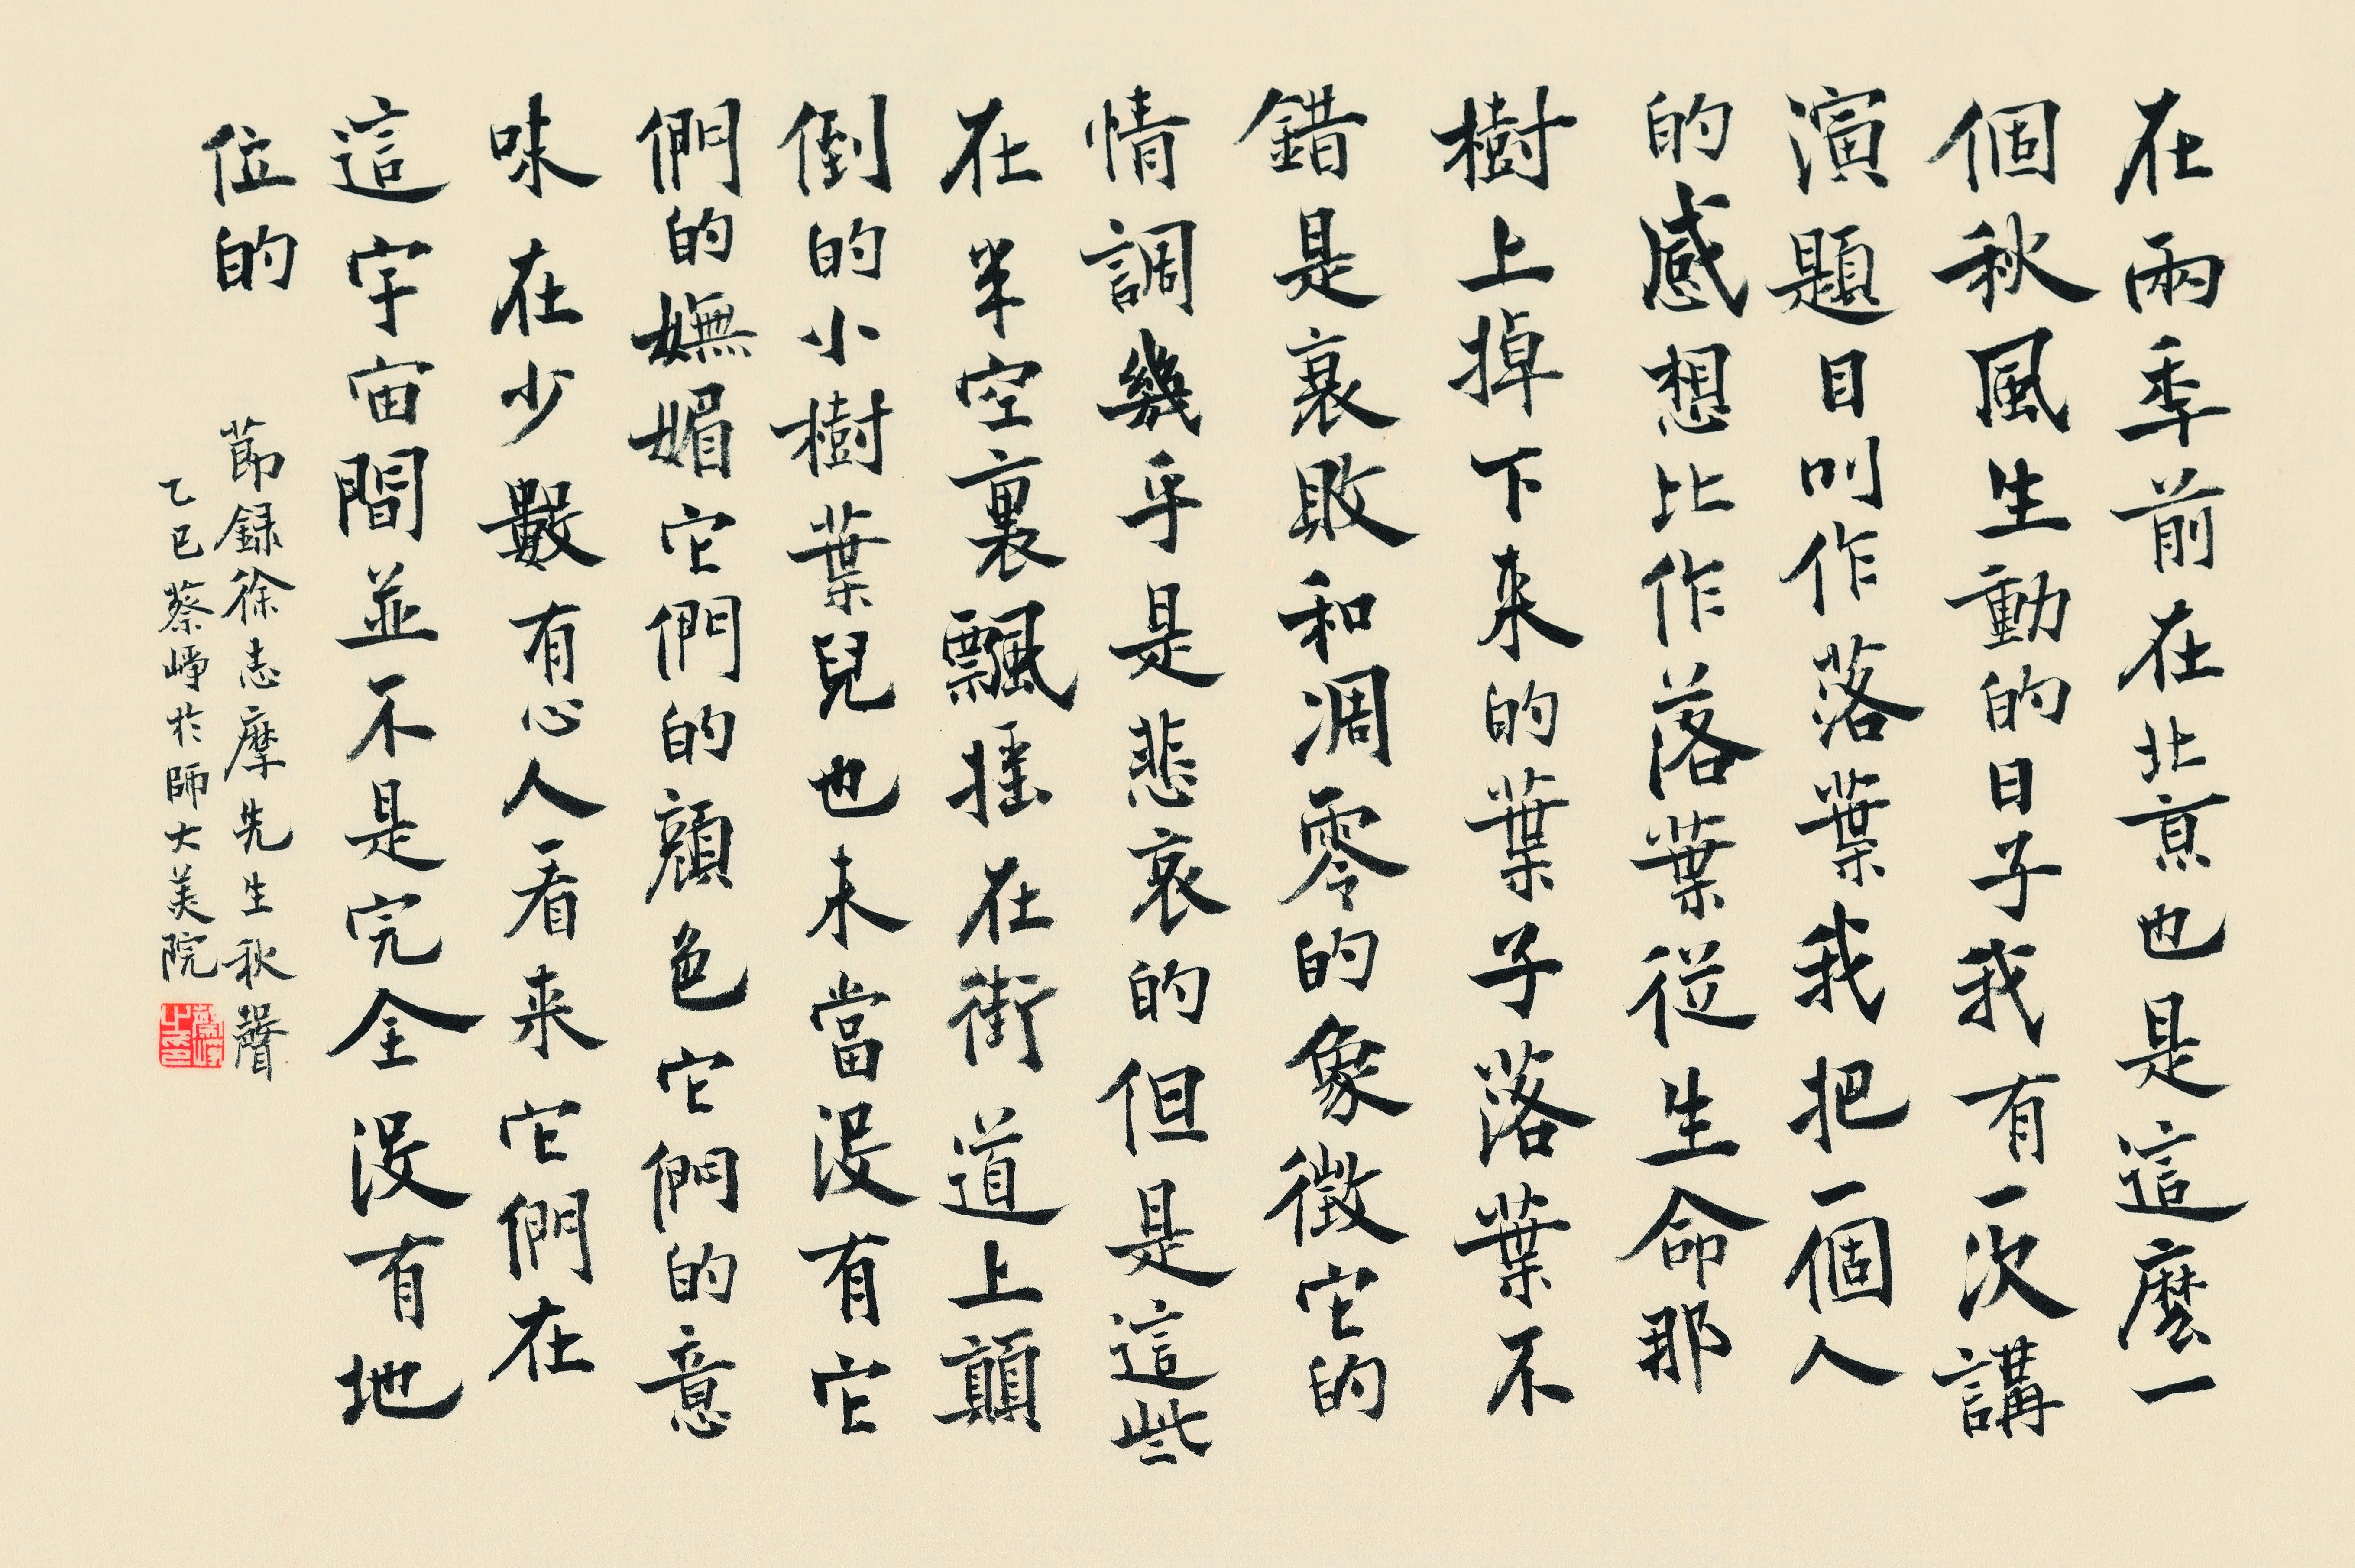 在兩季前在北京也是這麼一
個秋風生動的日子我有一次講
演題目叫作落葉我把一個人
的感想比作落葉從生命那
樹上掉下来的葉子落葉不
錯是衰敗和凋零的象徵它的
情調幾乎是悲哀的但是這些
在半空裏飄摇在街道上顛
倒的小樹葉兒也未當沒有它
們的嫵媚它們的顔色它們的意
味在少數有心人看来它們在
這宇宙間並不是完全沒有地
位的
節録徐志摩先生秋聲
乙巳蔡崢於師大美院